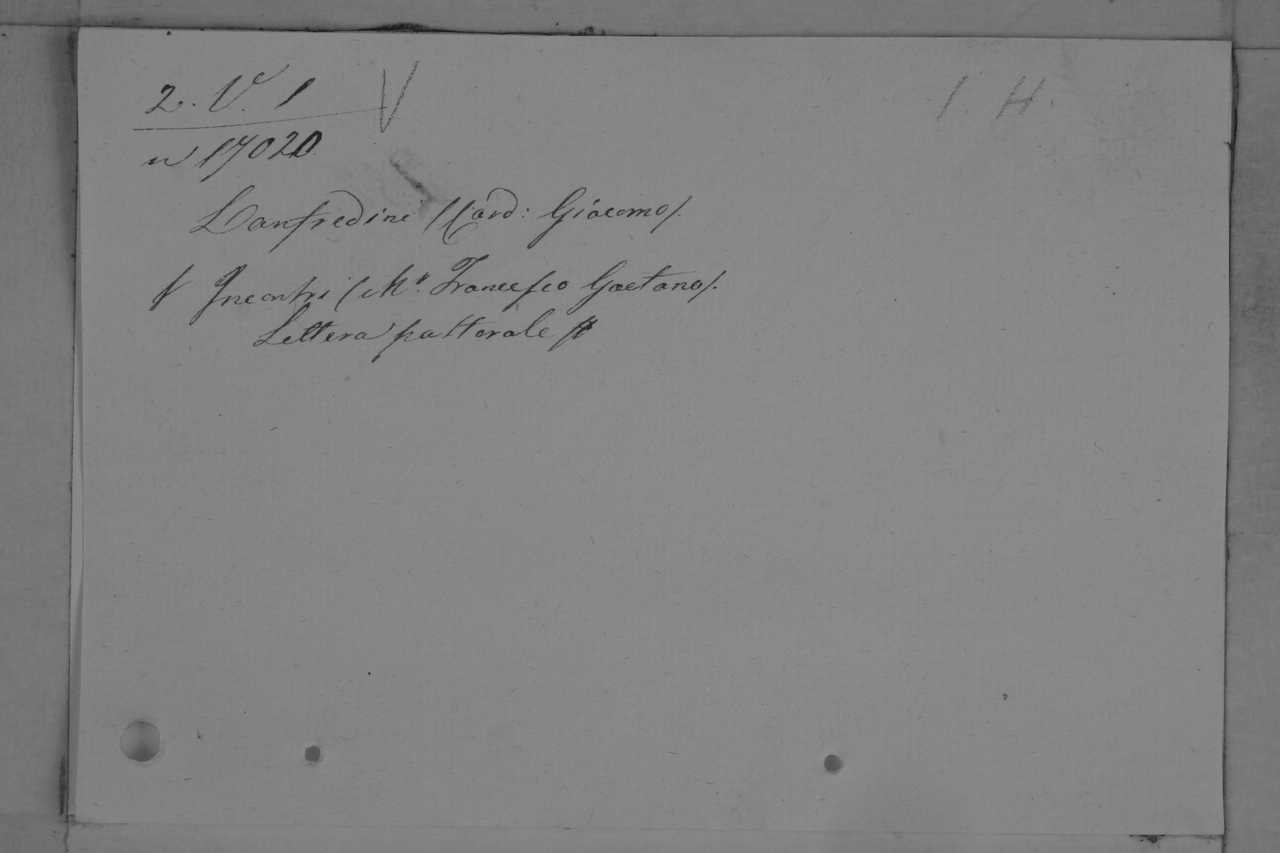 2. V. 1 V
I. H.
n 17020
Lanfredini (Card: Giacomo).
Incontri (Mr. Francesco Gaetano).
Lettera pastorale